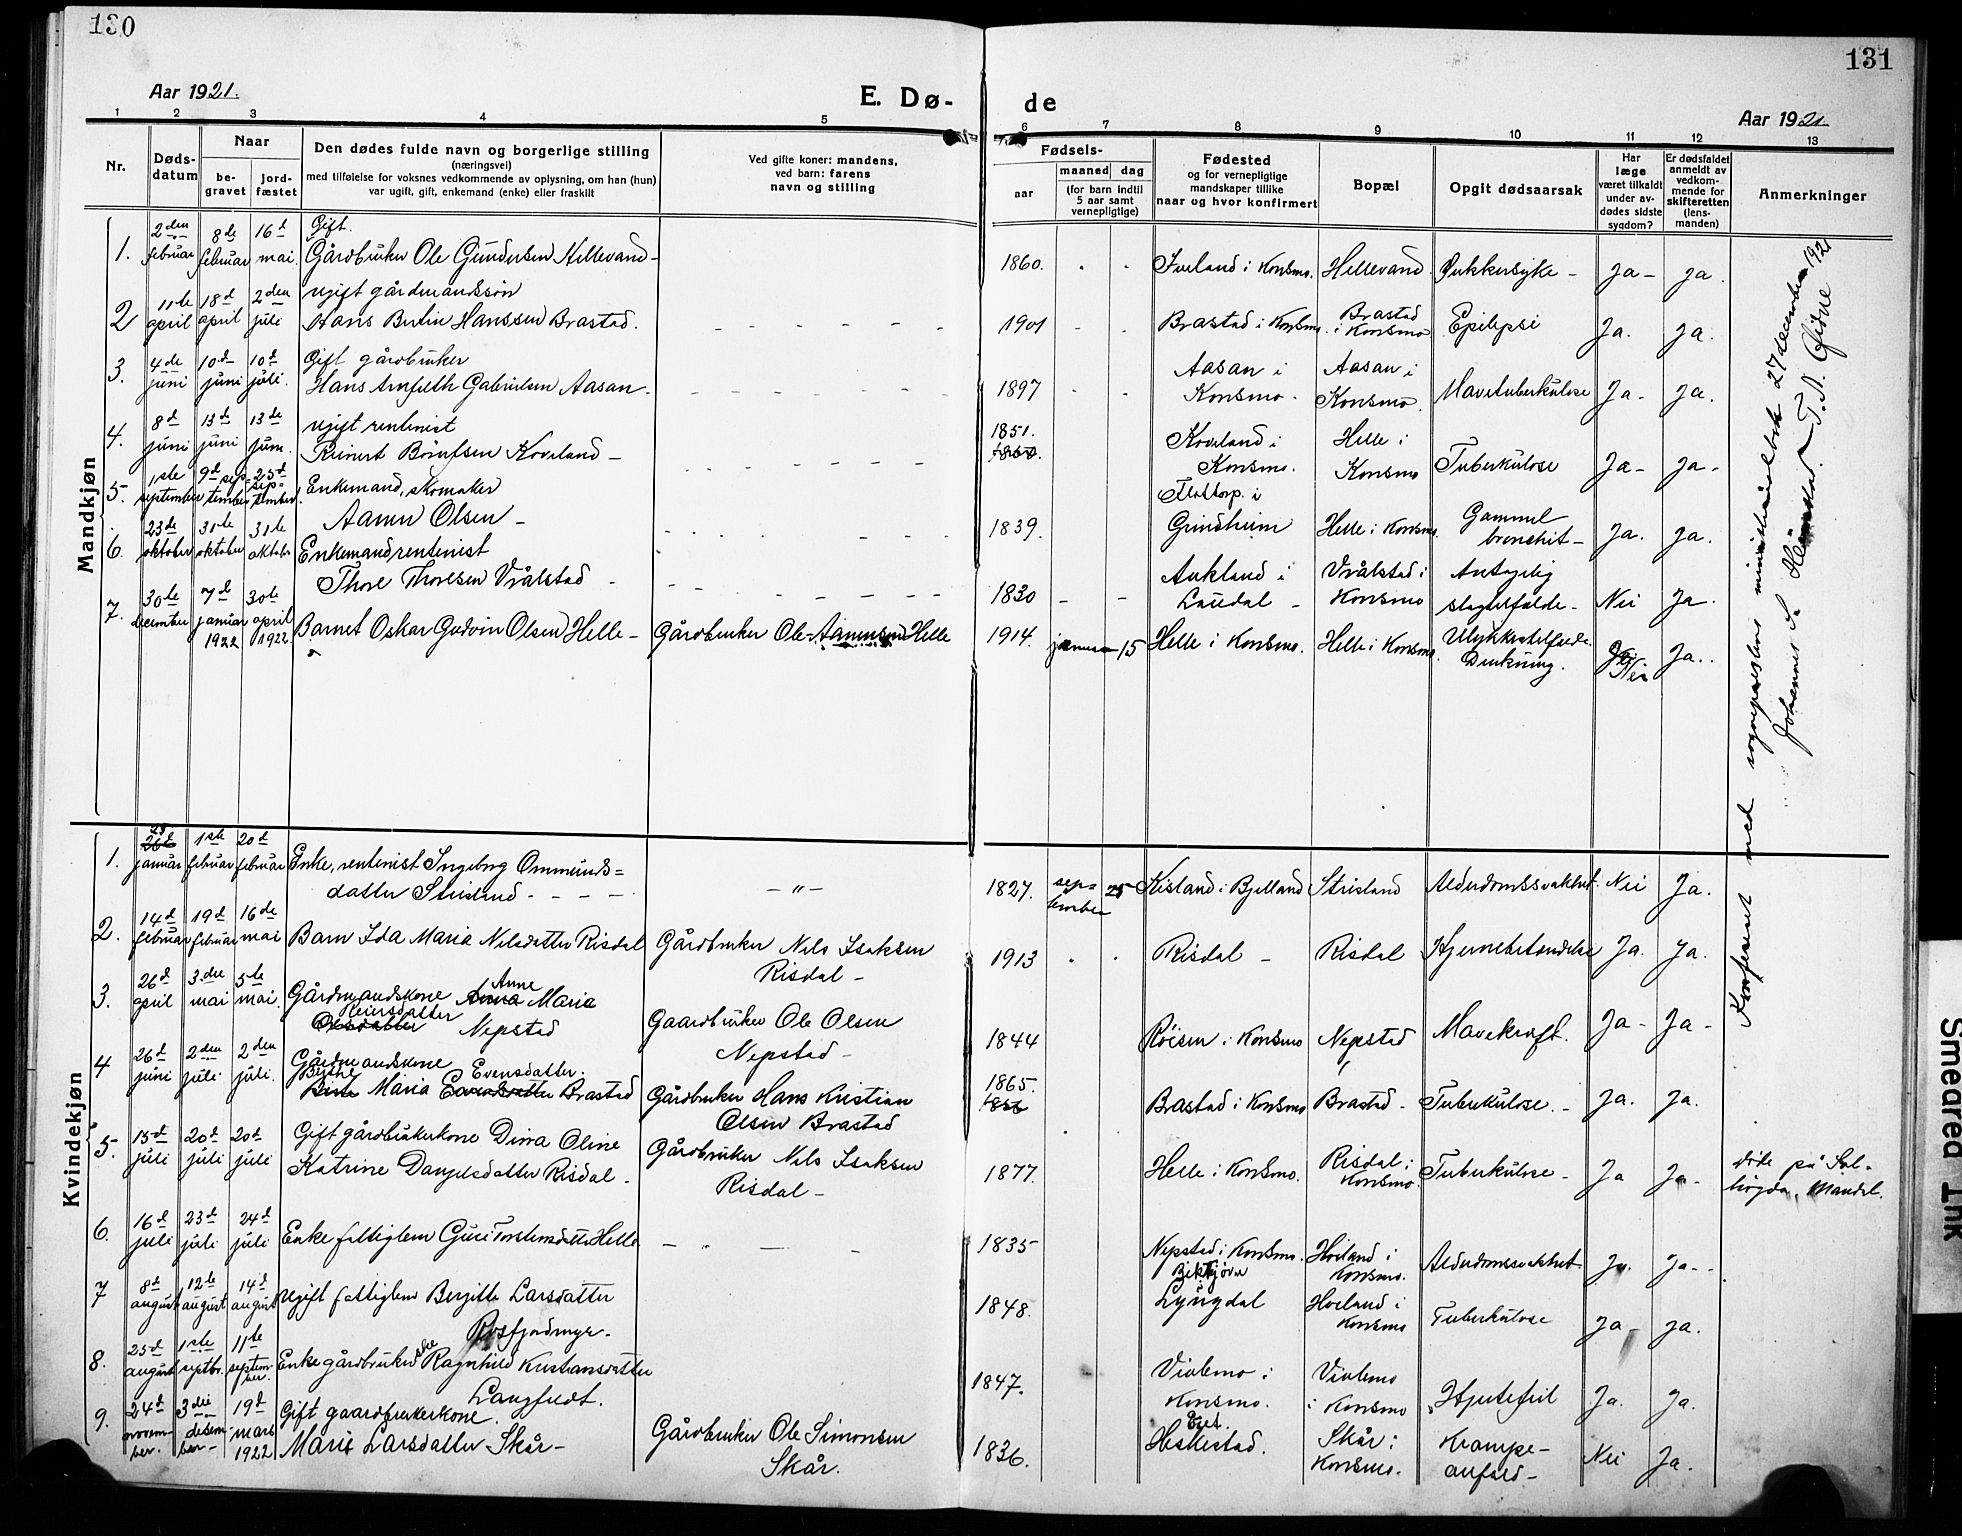 130
Aar 1921.
E. Dø-
1 2 3 4 5
Nr.
Døds-
datum
Naar
be-
gravet
jord-
fæstet
Den dødes fulde navn og borgerlige stilling
(næringsvei)
med tilføielse for voksnes vedkommende av oplysning, om han (hun)
var ugift, gift, enkemand (enke) eller fraskilt
Ved gifte koner: mandens,
ved barn: farens
navn og stilling
Mandkjøn
1. 2den februar 8de februar 16d mai. Gift.
Gårdbruker Ole Gundersen Hellevand -
2 11te april 18d april 2den juli ugift gårdmandssøn
Hans Bertin Hanssen Brastad.
3. 4de juni 10d juni 10d juli. Gift gårdbruker
Hans Arnfeth Gabrielsen Aasan -
4. 8d juni 13d juni 13de juni. ugift rentenist
Reinert Børufsen Kovland -
5. 1ste september 9d september 25d september Enkemand, skomaker
Aamu Olsen -
6. 23de oktober 31te oktober 31te oktober Enkemand rentenist
Thore Thoresen Vrålstad -
7. 30te december 7d januar 1922 30te april 1922 Barnet Oskar Godvin Olsen Helle - Gårdbruker Ole Aamundsen Helle
Kvindekjøn
1. 25 26d januar 1ste februar 20d februar Enke, rentenist Ingeborg Ommunds=
datter Strisland - - - - - " -
2. 14d februar 19d februar 16de mai Barn Ida Maria Nilsdatter Risdal Gårdbruker Nils Isaksen
Risdal -
3. 26d april 3die mai 5te mai. Gårdmandskone Anna Anne Maria
Olesdatter Reiersdatter Nepstad Gaardbruker Ole Olsen
Nepstad -
4 26d juni 2den juli 2den juli. Gårdmandskone Evensdatter.
Berte Berthe Maria Brastad Gårdbruker Hans Kristian
Olsen Brastad
5. 15d juli 20d juli 20d juli Gift gårdbrukerkone Dina Oline
Katrine Danielsdatter Risdal - Gårdbruker Nils Isaksen
Risdal -
6. 16d juli 23d juli 24d juli Enke fattiglem Guri Torstensdatter Helle
7 8d august 12te august 14d august ugift fattiglem Bergitte Larsdatter
Rosfjordmyr -
8. 25d august 1ste septbr. 11te september. Enke gårdbrukerske Ragnhild Kristiansdatter
Langfeldt.
9. 24d november. 3die desember - 19d mars 1922 Gift gaardbrukerkone.
Marie Larsdatter Skår - Gårdbruker Ole Simonsen
Skår.
131
de
Aar 1921.
6 7 8 9 10 11 12 13
Fødsels-
aar
maaned
dag
(for barn indtil
5 aar samt
vernepligtige)
Fødested
og for vernepligtige
mandskaper tillike
naar og hvor konfirmert
Bopæl
Opgit dødsaarsak
Har
læge
været tilkaldt
under av-
dødes sidste
sygdom?
Er dødsfaldet
anmeldt av
vedkom-
mende for
skifteretten
(lens-
manden)
Anmerkninger
1860. Iveland i Konsmo. Hellevand Sukkersyke - Ja - Ja.
1901 Brastad i Konsmo Brastad i Konsmo Epilepsi Ja. Ja.
1897 Aasan i Konsmo. Aasan i Konsmo. Mavetuberkulose Ja - Ja.
1851. 1850. Kovland i Konsmo. Helle i Konsmo Tuberkulose Ja - Ja -
1839. Flottorp i Grindheim Helle i Konsmo. Gammel bronchit - Ja. Ja.
1830 - - Aukland i Laudal - Vrålstad i Konsmo Antagelig slagtilfælde - Nei Ja.
1914. januar 15 Helle i Konsmo. Helle i Konsmo. Ulykkestilfælde. Drukning. Ja. Nei Ja.
1827. september 25 Kisland i Bjelland Strisland Alderdomssvakhet. Nei Ja.
1913 Risdal - Risdal Hjernebetændelse Ja. Ja.
1844 Röisen i Konsmo Nepstad Mavekræft. Ja - Ja -
1865. 1856 Brastad i Konsmo Brastad - Tuberkulose. - Ja. Ja.
1877. Helle i Konsmo. Risdal i Konsmo. Tuberkulose - Ja Ja - døde på Sol-
høgda, Mandal.
1835 Nepstad i Konsmo. Hoiland i Konsmo. Alderdomssvakhet. Ja. Ja -
1848. Lyngdal Hoeland i Konsmo Tuberkulose Ja - Ja.
1847. Viblemo i Konsmo. Viblemo i Konsmo Hjertefeil Ja. Ja.
1836. Hellestad. Skår i Konsmo. Krampeanfald - Nei Ja.
Konferert med sogneprestens ministerialbok 27 december 1921
Smeared Ink